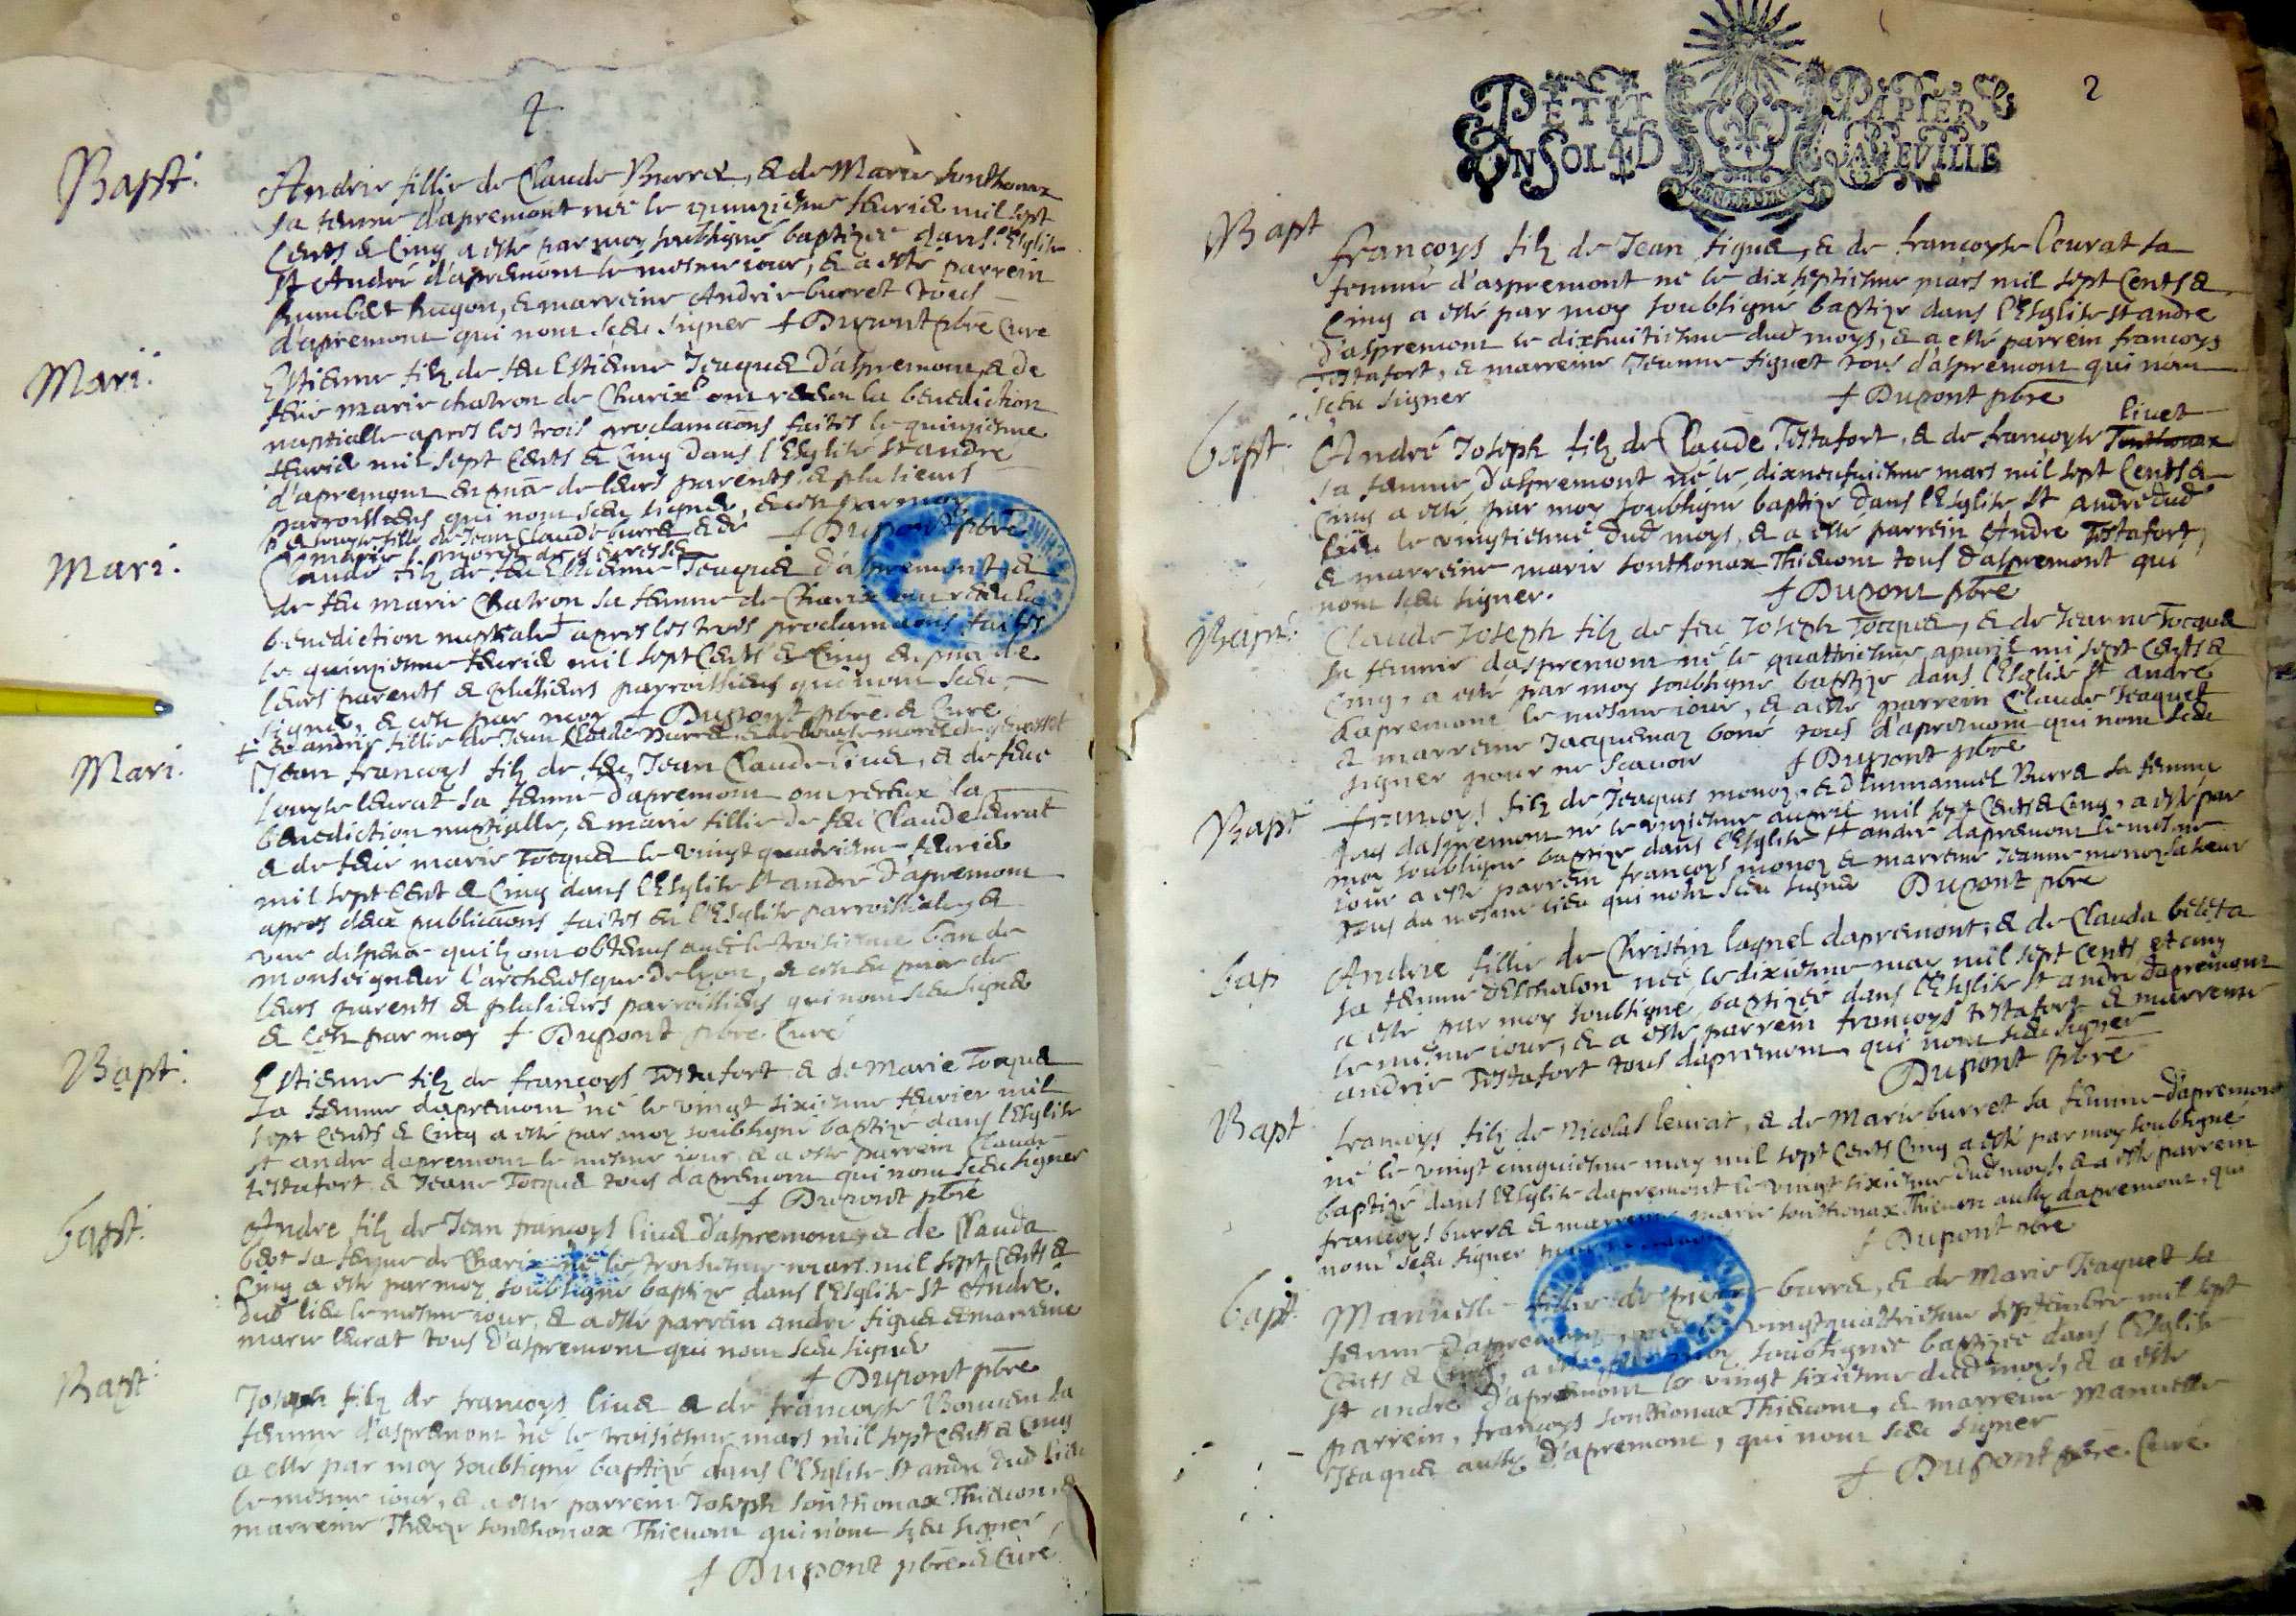 4
Bapt.
Andrie fillie de Claude Burret, & de Marie Sonthonax
sa femme d'apremont née le quinziesme feurier mil sept
Cents & Cinq a esté par moy soubsigné baptizée dans l'Esglise
St André d'apremont le mesme iour, & a esté parrein
humbert hugon, & marreine Andrie burret tous
d'apremont qui nont sceu signer + Dupont pbre Cure
Mari.
Estienne filz de feu Estienne Jeaquet d'aspremont, & de
feüe marie chatron de Charix ont receu la benediction
nuptialle apres les trois proclamaõns faites le quinziesme
feurier mil sept Cents & Cinq dans l'Esglise St andre
d'apremont en pñce de leurs parents, & plusieurs
parroissiens qui nont sceu signer, & ce par moy
fille de Jean Claude burret & de + Dupont pbre
Mari.
Claude filz de feu Estienne Jeaquet d'aspremont, &
de feu marie Chatron sa femme de Charix ont receu la
benediction nuptiale + apres les trois proclamaõns faites
le quinziesme feurier mil sept Cents & Cinq en pñce de
leurs parents & plusieurs parroissiens qui nont sceu
signer, & ce par moy + Dupont pbre & Cure
+ & andrie fillie de Jean Claude burret, & de
Mari.
Jean francoys filz de feu Jean Claude Liuet, & de feue
Louyse leurat sa femme d'apremont ont receux la
benediction nuptialle, & marie fillie de feu Claude leurat
& de feüe marie Tocquet le vingt quatriesme feurier
mil sept Cent & Cinq dans l'Esglise St andre d'apremont
apres deux publicaõns faites en l'Esglise parroissiale, &
une dispense quilz ont obtenus auec le troisiesme ban de
monseigneur l'archeuesque de Lyon, & ce en pñce de
leurs parents & plusieurs parroissiens qui nont sceu signer
& ce par moy + Dupont pbre Curé
Bapt.
Estienne filz de francoys Testafort & de Marie Tocquet
sa femme dapremont né le vingt sixiesme feurier mil
sept Cents & Cinq a esté par moy soubsigné baptizé dans l'Esglise
St andre dapremont le mesme iour & a esté parrein Claude
testafort & Jeane Tocquet tous d'apremont qui nont sceu signer
+ Dupont pbre
bapt.
Andre filz de Jean francoys Liuet d'aspremont, & de Clauda
sa femme de Charix né le troisiesme mars mil sept Cents &
Cinq a esté par moy soubsigné baptizé dans l'Esglise St André
dud lieu le mesme iour, & a esté parrein andre figuet & marreine
marie leurat tous d'aspremont qui nont sceu signer
+ Dupont pbre
Bapt.
Joseph filz de francoys Liuet & de francoyse sa
femme d'aspremont né le troisiesme mars mil sept Cents & Cinq
a esté par moy soubsigné baptizé dans l'Esglise St andre dud lieu
le mesme iour, & a esté parrein Joseph Sonthonax Thieuon, &
marreine Sonthonax Thieuont qui nont sceu signer
+ Dupont pbre & Curé
PETIT PAPIER
UN SOL 4 D LA FEVILLE
2
Bapt
francoys filz de Jean figuet, & de francoyse leurat sa
femme d'aspremont né le dixseptiesme mars mil sept Cents &
Cinq a esté par moy soubsigné baptizé dans l'Esglise St andre
d'aspremont le dixhuitiesme dud moys, & a esté parrein francoys
Testafort, & marreine Jeanne figuet tous d'aspremont qui nont
sceu signer + Dupont pbre
bapt.
André Joseph filz de Claude Testafort, & de francoyse Liuet
sa femme d'aspremont né le dixneufuiesme mars mil sept Cents &
Cinq a esté par moy soubsigné baptizé dans l'Esglise St André dud
lieu le vingtiesme dud moys, & a esté parrein Andre Testafort,
& marreine marie Sonthonax Thieuont tous d'aspremont qui
nont sceu signer. + Dupont pbre
Bapt.
Claude Joseph filz de feu Joseph Tocquet, & de Jeanne Tocquet
sa femme daspremont né le quattriesme apuril mil sept Cents &
Cinq, a esté par moy soubsigné baptizé dans l'Esglise St andre
dapremont le mesme iour, & a esté parrein Claude Jeaquet
& marreine Jacquemaz boné tous d'apremont qui nont sceu
signer pour ne scauoir + Dupont pbre
Bapt
francoys filz de Jeaques monoz, & d'Emmanuel Burret sa femme
tous daspremont né le auril mil sept Cents & Cinq, a esté par
moy soubsigné baptizé dans l'Esglise St andre dapremont le mesme
iour a esté parrein francoys monoz & marreine Jeanne monoz sa soeur
tous du mesme lieu qui nont sceu signer Dupont pbre
bap
Andrie fillie de Christin lagnel dapremont, & de Clauda
sa femme d'Eschalon née le dixiesme may mil sept Cents et cinq
a esté par moy soubsigné baptizée dans l'Esglise St andre dapremont
le mesme iour, & a esté parrein francoys testafort & marreine
andrie Testafort tous dapremont, qui nont sceu signer
Dupont pbre
Bapt
francoys filz de Nicolas leurat, & de Marie burret sa femme d'apremont
né le vingt cinquiesme may mil sept Cents Cinq a esté par moy soubsigné
baptizé dans l'Esglise dapremont le vingt sixiesme dud moys, & a esté parrein
francoys burret & marreine marie Sonthonax Thieuon aussy dapremont, qui
nont sceu signer
+ Dupont pbre
bapt.
Manuelle fillie de burret, & de Marie Jeaquet sa
femme d'apremont, vingtquattriesme septembre mil sept
Cents & Cinq, a esté par moy soubsigné baptizée dans l'Esglise
St andre d'apremont le vingt sixiesme dud moys, & a esté
parrein, francoys Sonthonax Thieuont, & marreine Manuelle
Jeaquet aussy d'apremont, qui nont sceu signer
+ Dupont pbre Curé